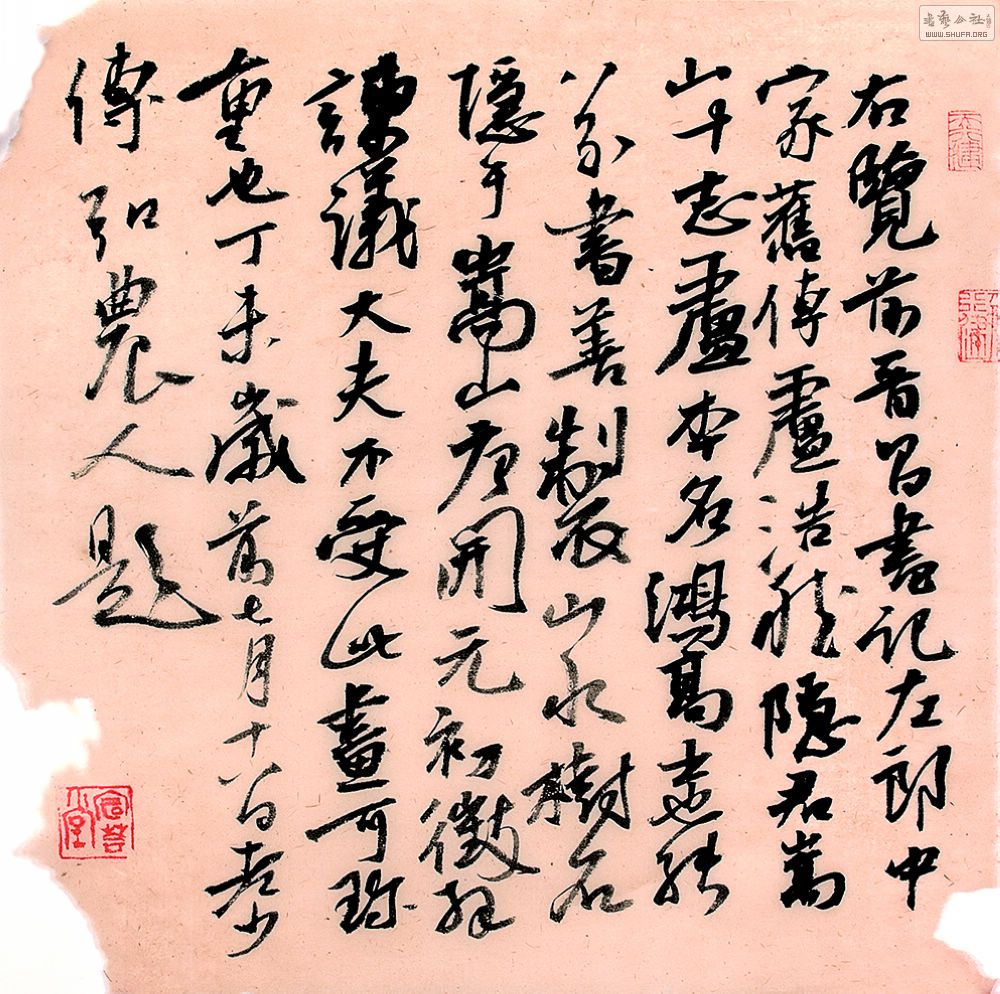 右覽前晉昌書記左郎中
家舊傳盧浩然隱君嵩
山十志盧本名鴻高士也能
八分書善製山水樹石
隱于嵩山唐開元初徵拜
諫議大夫不受此畫可珍
重也丁未歲前七月十八日老少
傅弘農人題
書藝公社
WWW.SHUFA.ORG